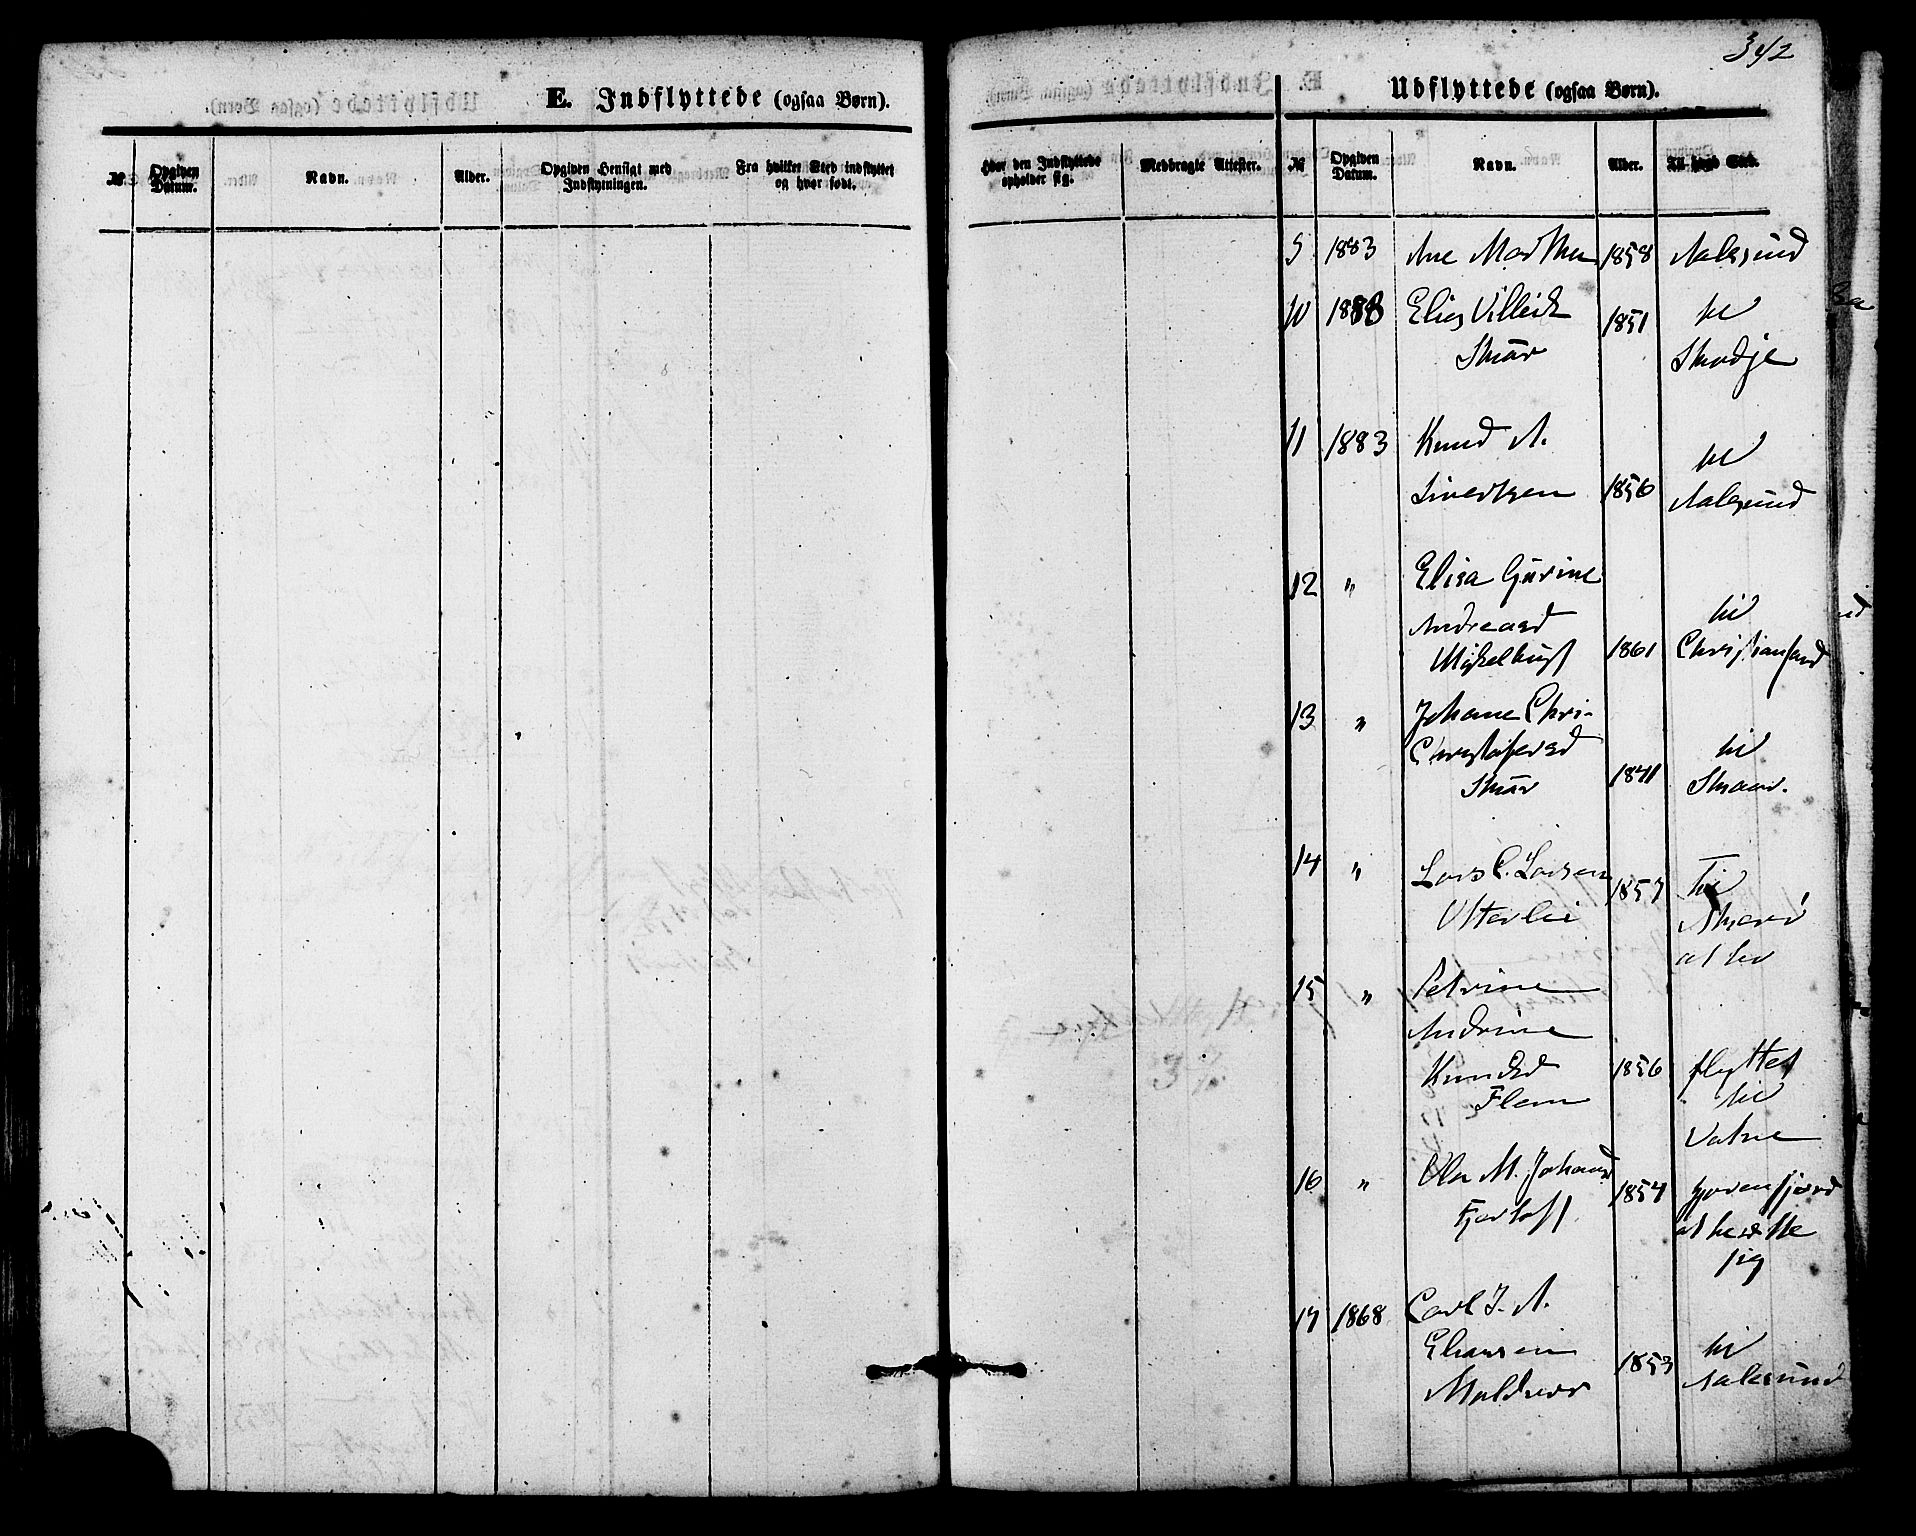 342
E. Indflyttede (ogsaa Børn).
№ Opgiven Datum. Navn. Alder. Opgiven Hensigt med Indflytningen. Fra hvilket Sted indflyttet og hvor født.
Hvor den Indflyttede opholder sig. Medbragte Attester.
Udflyttede (ogsaa Børn).
№ Opgiven Datum. Navn. Alder. Til hvad Sted.
9 1883 Ane Marthea 1858 Aalesund
10 1883 Elias Villeik til
Skaar 1851 Skodje
11 1883 Knud A. til
Sivertsen 1856 Aalesund
12 " Elisa Gurine
Andreasd til
Mykelbust 1861 Christiansund
13 " Johane Chri-
Christofersd til
Skaar 1841 Skaar.
14 " Lars C. Larsen 1857 Til
Ytterlie
15 " Petrine
Andrine
Knudsd 1856 flyttet
Flem til
Vatne
16 " Ola M. Johans 1854
Fjørtoft
sig
17 1868 Carl J. A.
Eliassen til
1853 Aalesund